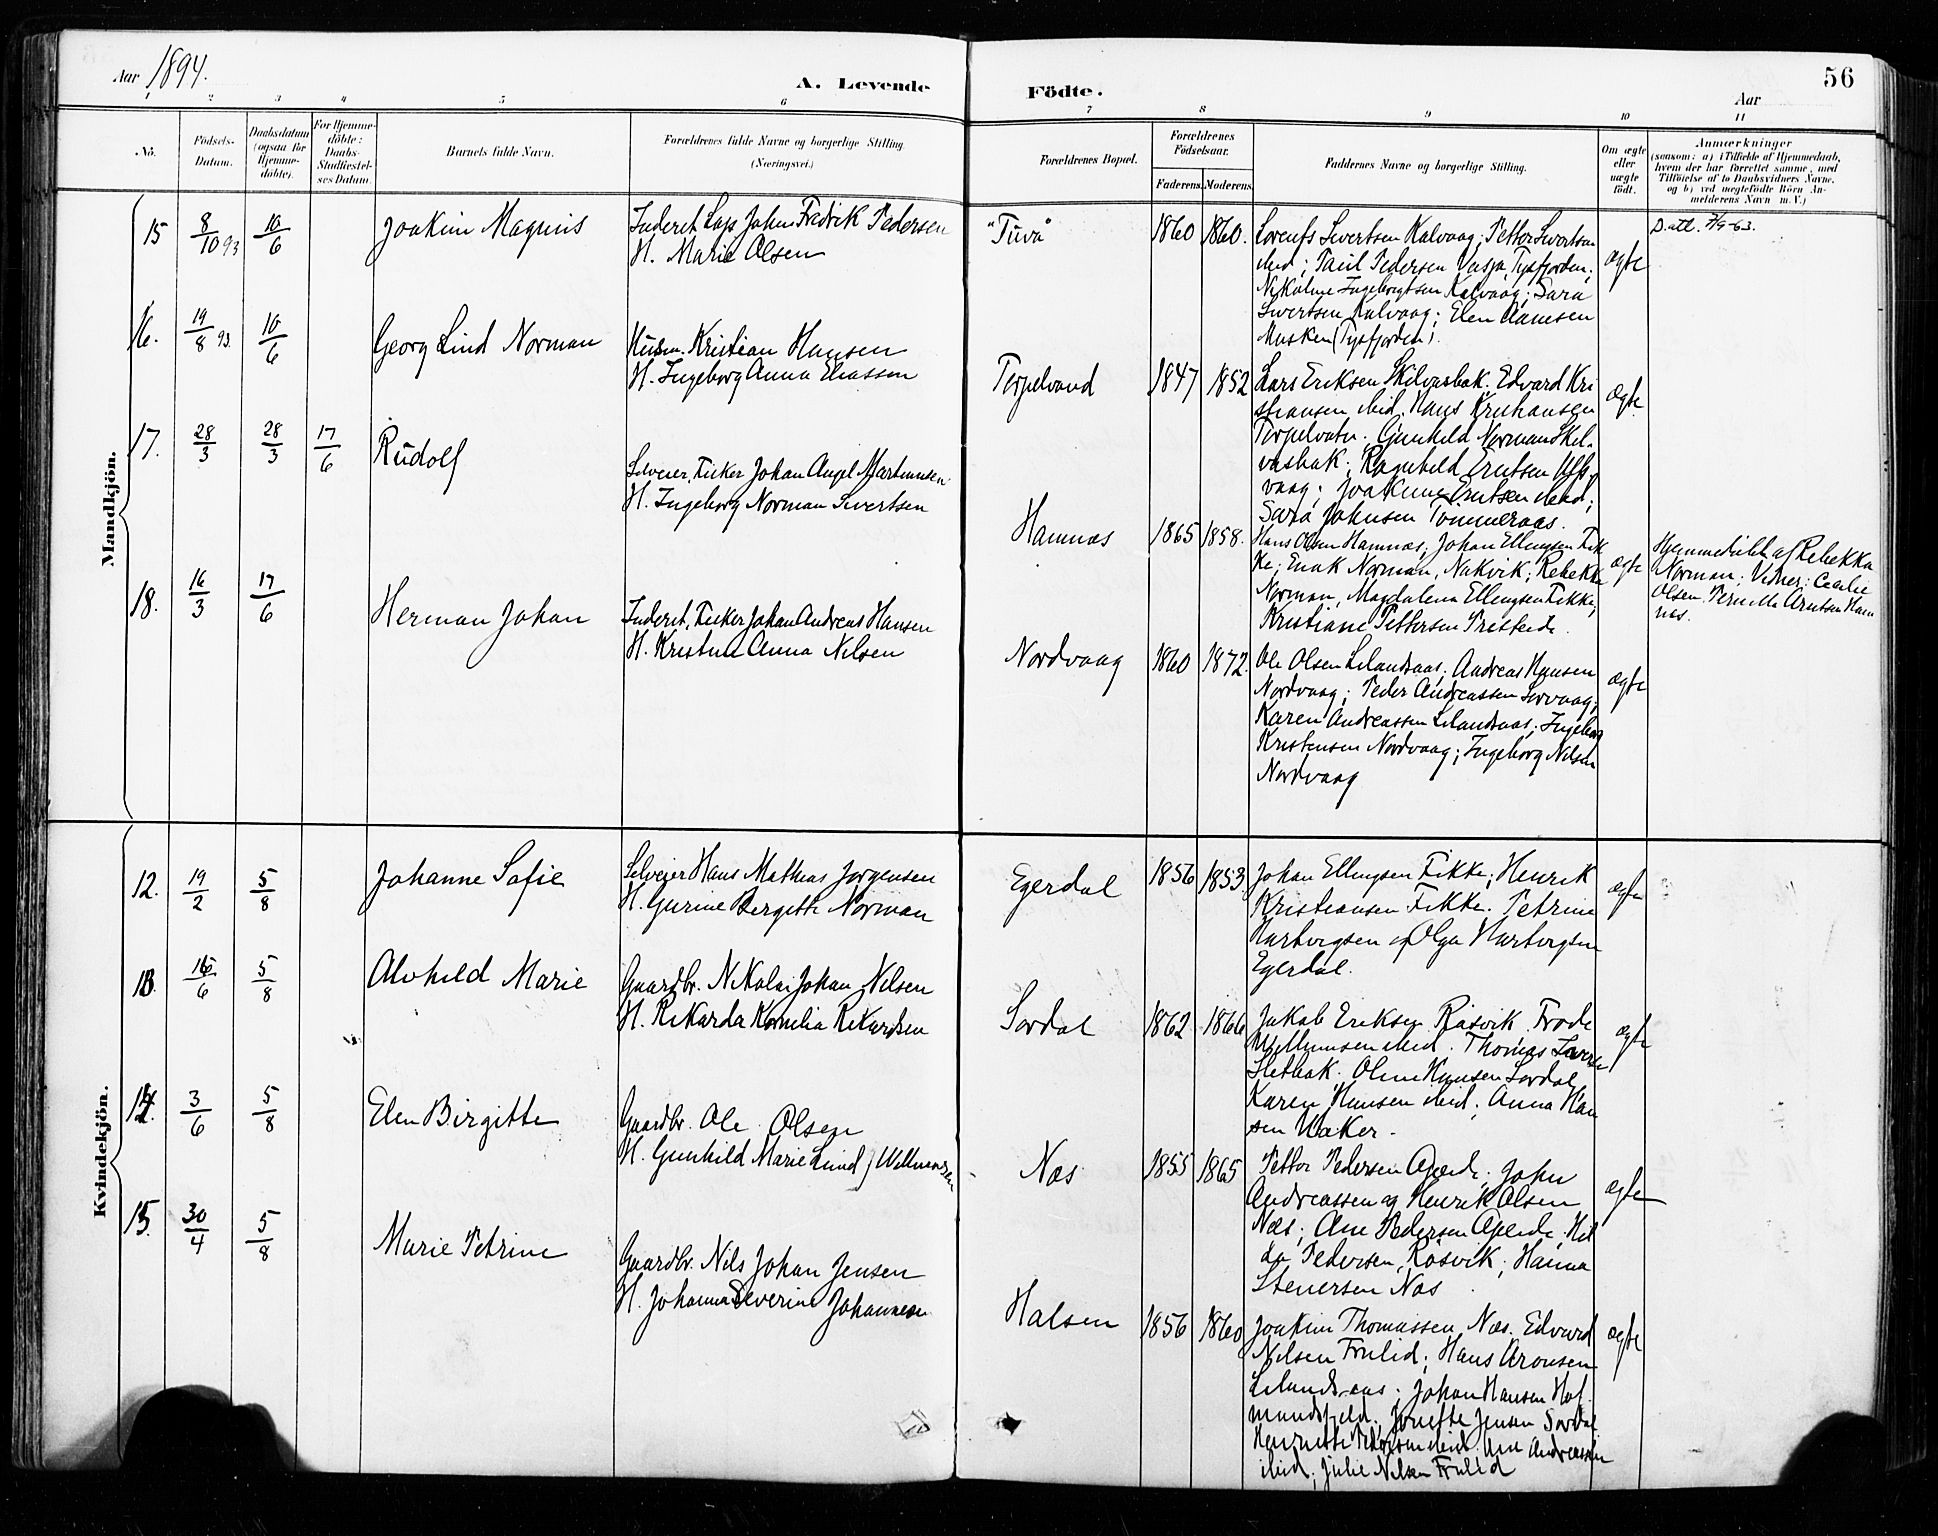 Aar 1894.
A. Levende
Födte.
Aar
56
1 2 3 4 5 6 7 8 9 10 11
No.
Födsels-
Datum.
Daabsdatum
(ogsaa for
Hjemme-
döbte).
For Hjemme-
döbte:
Daabs-
Stadfæstel-
ses Datum.
Barnets fulde Navn.
Forældrenes fulde Navne og borgerlige Stilling.
(Næringsvei.)
Forældrenes Bopæl.
Forældrenes
Födselsaar.
Faderens. Moderens.
Faddernes Navne og borgerlige Stilling.
Om ægte
eller
uægte
födt.
Anmærkninger
(saasom: a) i Tilfælde af Hjemmedaab,
hvem der har forrettet samme, med
Tilföielse af to Daabsvidners Navne,
og b) ved uægtefödte Börn An-
melderens Navn m. V.)
Mandkjön.
15 8/10 93 10/6 Joakim Magnus
Inderst Lap Johan Fredrik Pedersen
H. Marie Olsen
"Tuva" 1860 1860.
Lorents Sivertsen Kalvaag; Petter Sivertsen
ibid; Paul Pedersen Tysfjorden;
Ingebrigtsen Kalvaag; Sara
Sivertsen Kalvaag; Elen
Musken (Tysfjorden).
ægte
D.atl. 7/9-63.
16. 19/8 93. 10/6 Georg Lind Norman
Husm. Kristian Hansen
H. Ingeborg Anna Eliassen
Terpelvand 1847 1852
Lars Eriksen Skilvasbak. Edvard Kri
stiansen ibid. Hans Kristiansen
Terpelvatn. Gunhild Norman Skil-
vasbak; Ragnhild Erntsen
vaag; Joakime Erntsen ibid;
Sara Johnsen Tömmeraas.
ægte
17. 28/3 28/3 17/6 Rudolf
Selveier, Fisker Johan Angel Martinusen
H. Ingeborg Norman Sivertsen
Hamnæs 1865 1858.
Hans Olsen Hamnæs; Johan Ellingsen Fik
ke; Enok Norman, Nakvik; Rebekka
Norman, Magdalena Ellingsen Fikke;
Kristiane Pettersen
ægte
Hjemmedøbt af Rebekka
Norman; Vidner: Cecilie
Olsen. Pernille Arntsen Ham
næs.
18. 16/3 17/6 Herman Johan
Inderst, Fisker Johan Andreas Hansen
H. Kristine Anna Nilsen
Nordvaag 1860 1872.
Ole Olsen Lilandsaas; Andreas Hansen
Nordvaag; Peder Andreassen Sørvaag;
Karen Andreassen Lilandsaas; Ingeborg
Kristensen Nordvaag; Ingeborg Nilsen
Nordvaag
ægte
Kvindekjön.
12. 19/2 5/8 Johanne Sofie
Selveier Hans Mathias Jørgensen
H. Gurine Bergitte Norman
Egerdal 1856 1853.
Johan Ellingsen Fikke; Henrik
Kristiansen Fikke. Petrine
Hartvigsen og Olga Hartvigsen
Egerdal.
ægte
13. 16/6 5/8 Alvhild Marie
Gaardbr. Nikolai Johan Nilsen
H. Rikarda Kornelia Rikardsen
Sørdal 1862 1866
Jakob Eriksen Røsvik. Frode
Willumsen ibid. Thomas
Sletbak. Oline Hansen Sørdal
Karen Hansen ibid; Anna Han
sen Uaker.
ægte
14. 3/6 5/8 Elen Birgitte
Gaardbr. Ole Olsen
H. Gunhild Marie Lund f Willumsen
Næs 1855 1865
Petter Pedersen Øjerde; John
Andreassen og Henrik Olsen
Næs; Ane Pedersen Øjerde. Hil
da Pedersen, Røsvik; Hanna
Stenersen Næs.
ægte
15. 30/4 5/8 Marie Petrine
Gaardbr. Nils Johan Jensen
H. Johanna Severine Johannesen
Halsen 1856 1860
Joakim Thomassen, Næs. Edvard
Nilsen Frulid; Hans Aronsen
Lilandsaas; Johan Hansen Hof
mundsfjeld. Jensen Sørdal
Henriette Pedersen ibid. Ane Andreassen
ibid; Julie Nilsen Frulid
ægte